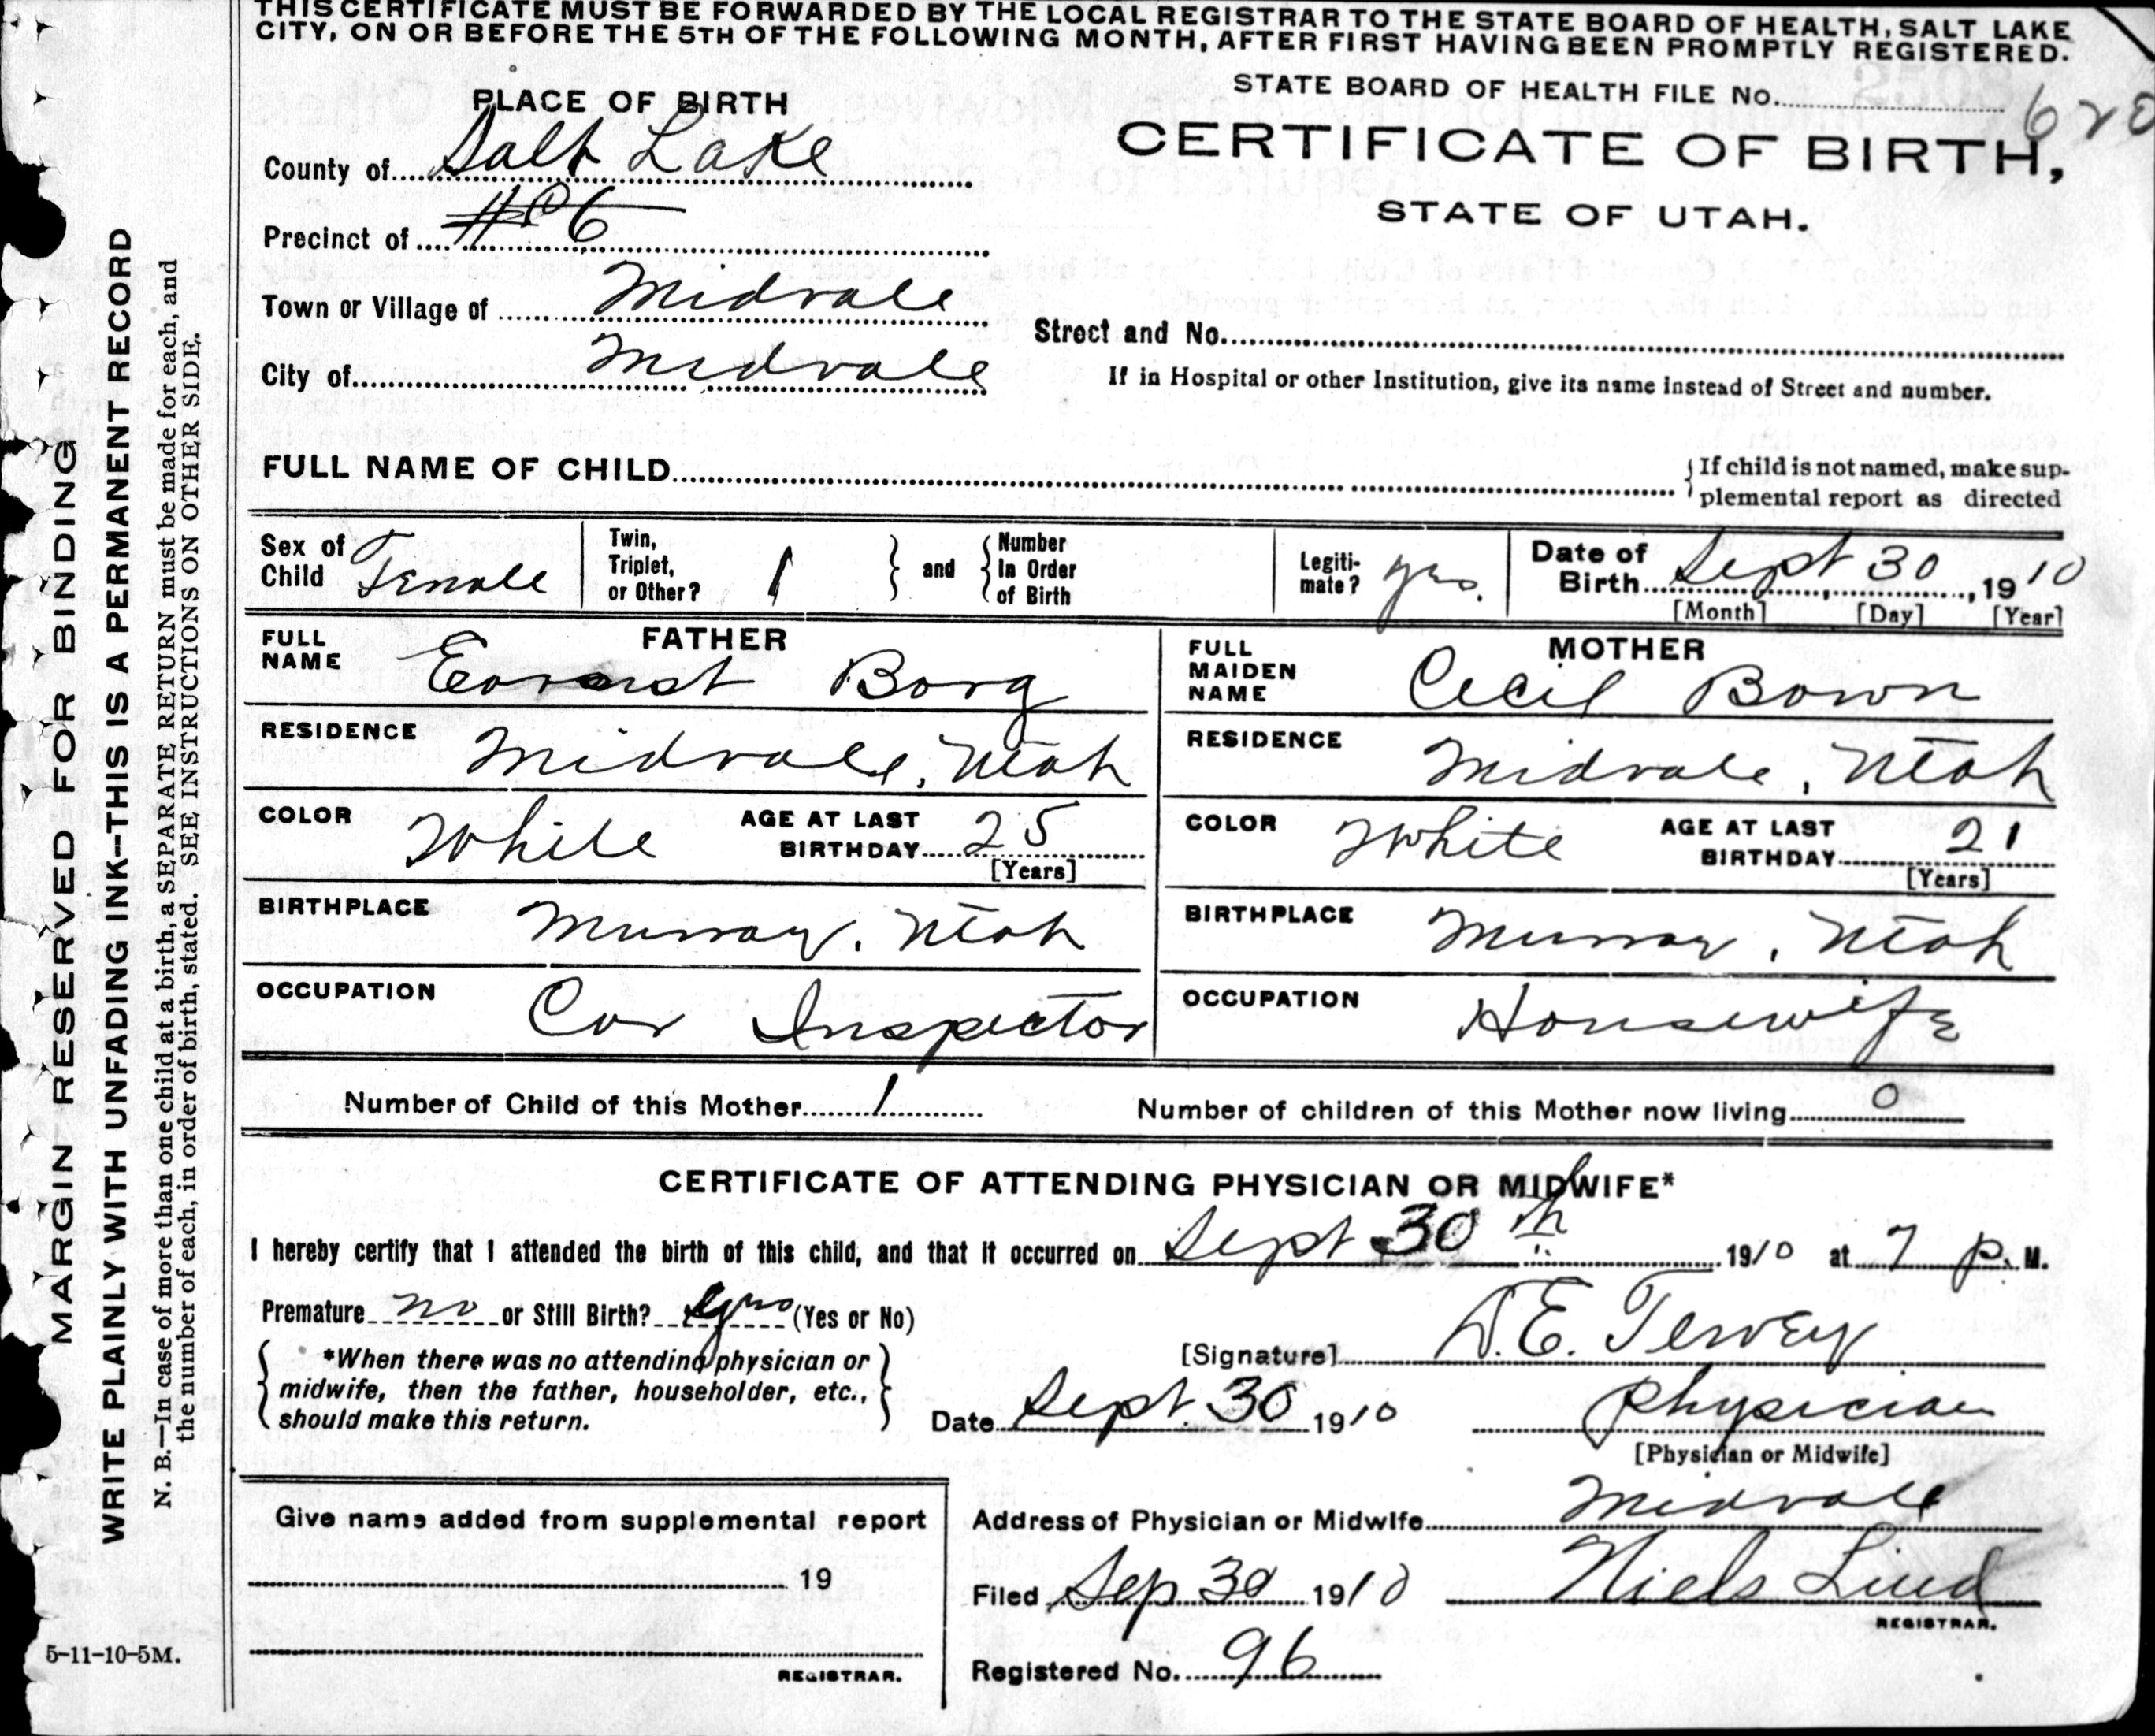 THIS CERTIFICATE MUST BE FORWARDED BY THE LOCAL REGISTRAR TO THE STATE BOARD OF HEALTH, SALT LAKE
CITY, ON OR BEFORE THE 5TH OF THE FOLLOWING MONTH, AFTER FIRST HAVING BEEN PROMPTLY REGISTERED.
STATE BOARD OF HEALTH FILE No.
PLACE OF BIRTH
CERTIFICATE OF BIRTH,
STATE OF UTAH.
County of Salt Lake
Precinct of #6
Town or Village of Midvale
Street and No.
City of Midvale
If in Hospital or other Institution, give its name instead of Street and number.
FULL NAME OF CHILD
If child is not named, make sup-
plemental report as directed
Sex of Child Female
Twin, Triplet, or Other? 1
and Number In Order of Birth
Legiti-mate? yes.
Date of Birth Sept 30, 1910
[Month] [Day] [Year]
FATHER
FULL NAME Evorst Borg
MOTHER
FULL MAIDEN NAME Cecil Bown
RESIDENCE Midvale, Utah
RESIDENCE Midvale, Utah
COLOR White AGE AT LAST BIRTHDAY 25 [Years]
COLOR White AGE AT LAST BIRTHDAY 21 [Years]
BIRTHPLACE Murray, Utah
BIRTHPLACE Murray, Utah
OCCUPATION Car Inspector
OCCUPATION Housewife
Number of Child of this Mother 1
Number of children of this Mother now living 0
CERTIFICATE OF ATTENDING PHYSICIAN OR MIDWIFE*
I hereby certify that I attended the birth of this child, and that it occurred on Sept 30th 1910 at 7 p. M.
Premature no or Still Birth? yes (Yes or No)
*When there was no attending physician or
midwife, then the father, householder, etc.,
should make this return.
[Signature] D.E. Tewey
Date Sept. 30 1910
Physician
[Physician or Midwife]
Address of Physician or Midwife Midvale
Filed Sep 30 1910 Niels Lind
REGISTRAR.
Registered No. 96
Give name added from supplemental report
19
REGISTRAR.
5-11-10-5M.
MARGIN RESERVED FOR BINDING
WRITE PLAINLY WITH UNFADING INK--THIS IS A PERMANENT RECORD
N. B.—In case of more than one child at a birth, a SEPARATE RETURN must be made for each, and
the number of each, in order of birth, stated. SEE INSTRUCTIONS ON OTHER SIDE.